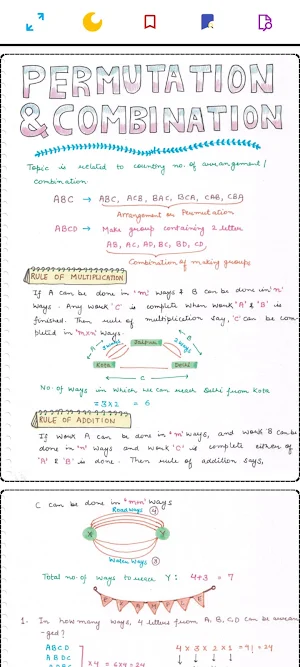 PERMUTATION
& COMBINATION
Topic is related to counting no. of arrangement /
combination.
ABC → ABC, ACB, BAC, BCA, CAB, CBA
Arrangement or Permutation
ABCD → Make group containing 2 letters
AB, AC, AD, BC, BD, CD
Combination or making groups
RULE OF MULTIPLICATION
If A can be done in 'm' ways & B can be done in 'n'
ways. Any work 'C' is complete when work 'A' & 'B' is
finished. Then rule of multiplication say, 'C' can be com-
pleted in 'm×n' ways.
A
3 ways
Jaipur
2 ways
B
Kota
Delhi
C
No. of ways in which we can reach Delhi from Kota
= 3×2 = 6
RULE OF ADDITION
If work A can be done in 'm' ways, and work B can be
done in 'n' ways and work 'C' is complete either of
'A' & 'B' is done. Then rule of addition says,
C can be done in 'm+n' ways
Roadways 4
X
Y
Water ways 3
Total no. of ways to reach Y : 4+3 = 7
1. In how many ways, 4 letters from A, B, C, D can be arran
-ged?
ABCD
4 × 3 × 2 × 1 = 4! = 24
ABDC
×4 = 6×4 = 24